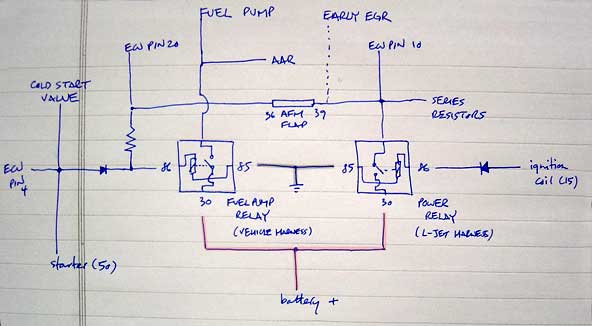 FUEL PUMP
EARLY EGR
ECU PIN 20
AAR
ECU PIN 10
COLD START
VALVE
36 AFM 39
FLAP
SERIES
RESISTORS
ECU
PIN
4
86
85
85
86
ignition
coil (15)
30
FUEL PUMP
RELAY
(VEHICLE HARNESS)
30
POWER
RELAY
(L-JET HARNESS)
starter (50)
battery +